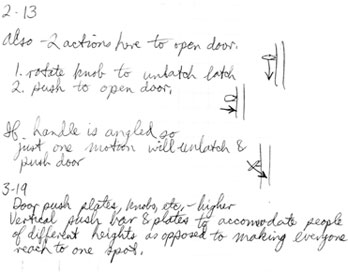 2-13
Also - 2 actions here to open door.
1. rotate knob to unlatch latch
2. push to open door.
If handle is angled so
just one motion will unlatch &
push door
3-19
Door push plates, knobs, etc, - higher
Vertical push bar & plates to accomodate people
of different heights as opposed to making everyone
reach to one spot.